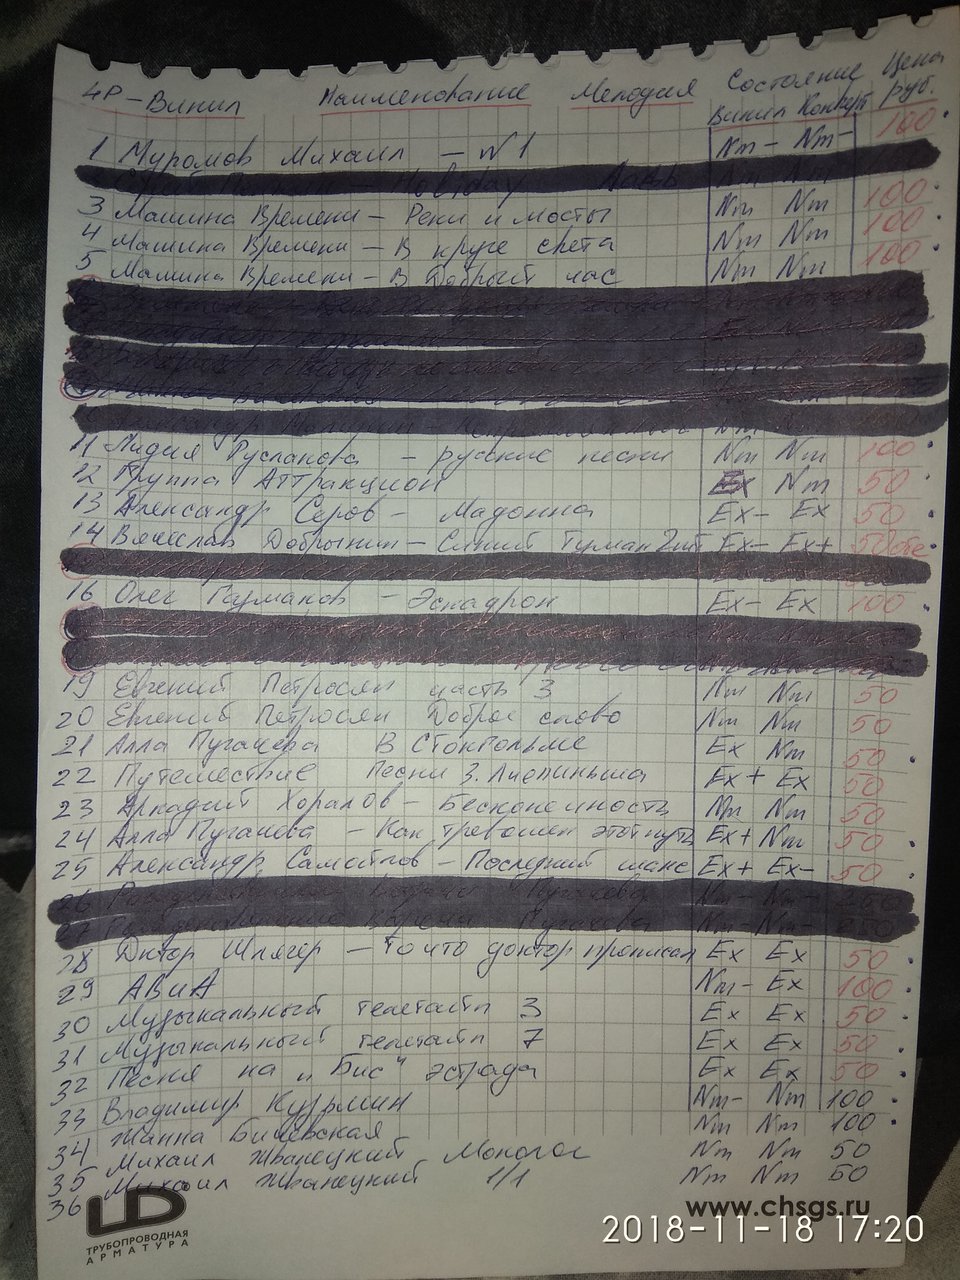 ЧР-Винил Наименование Мелодия Состояние Цена
Винил Конверт руб.
1 Муромов Михаил - N1 Nm- Nm- 100
Holiday
3 Машина Времени - Реки и мосты Nm Nm 100
4 Машина Времени - В круге света Nm Nm 100
5 Машина Времени - В Добрый час Nm Nm 100
11 Лидия Русланова - русские песни Nm Nm 100
12 Группа Аттракцион Ex Nm 50
13 Александр Серов - Мадонна Ex- Ex 50
14 Вячеслав Добрынин - Синий Туман 2шт Ex- Ex+ 50 обе
16 Олег Газманов - Эскадрон Ex- Ex 100
19 Евгений Петросян часть 3 Nm Nm 50
20 Евгений Петросян Доброе слово Nm Nm 50
21 Алла Пугачева В Стокгольме Ex Nm 50
22 Путешествие Песни З. Лиепиньша Ex+ Ex 50
23 Аркадий Хоралов - Бесконечность Nm Nm 50
24 Алла Пугачева - Как тревожен этот путь Ex+ Nm 50
25 Александр Самойлов - Последний шанс Ex+ Ex- 50
26 Пугачева Nm- Nm- 250
27 Пугачева Nm- Nm- 250
28 Дктор Шлягер - То что доктор прописал Ex Ex 50
29 АВиА Nm- Ex 100
30 Музыкальный телетайп 3 Ex Ex 50
31 Музыкальный телетайп 7 Ex Ex 50
32 Песня на „Бис" эстрада Ex Ex 50
33 Владимир Кузьмин Nm- Nm 100
34 Жанна Бичевская Nm Nm 100
35 Михаил Жванецкий Монолог Nm Nm 50
36 Михаил Жванецкий 1/1 Nm Nm 50
ТРУБОПРОВОДНАЯ
АРМАТУРА
www.chsgs.ru
2018-11-18 17:20